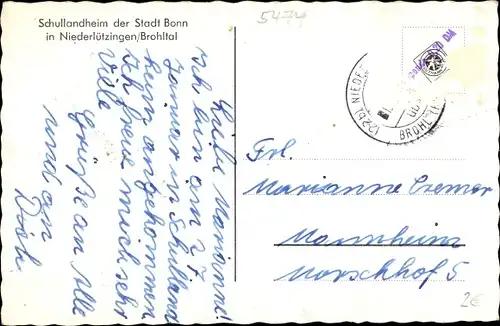 Schullandheim der Stadt Bonn
in Niederlützingen/Brohltal
5474
(22b) NIEDE
BROHLTAL
Liebe Mariann!
Ich bin am 27
Januar in Schulland
heim angekommen
Ich freue mich sehr
Viele
Grüße an Alle
und an
Dich
Frl.
Marianne Cremer
Mannheim
Morschhof 5
2€